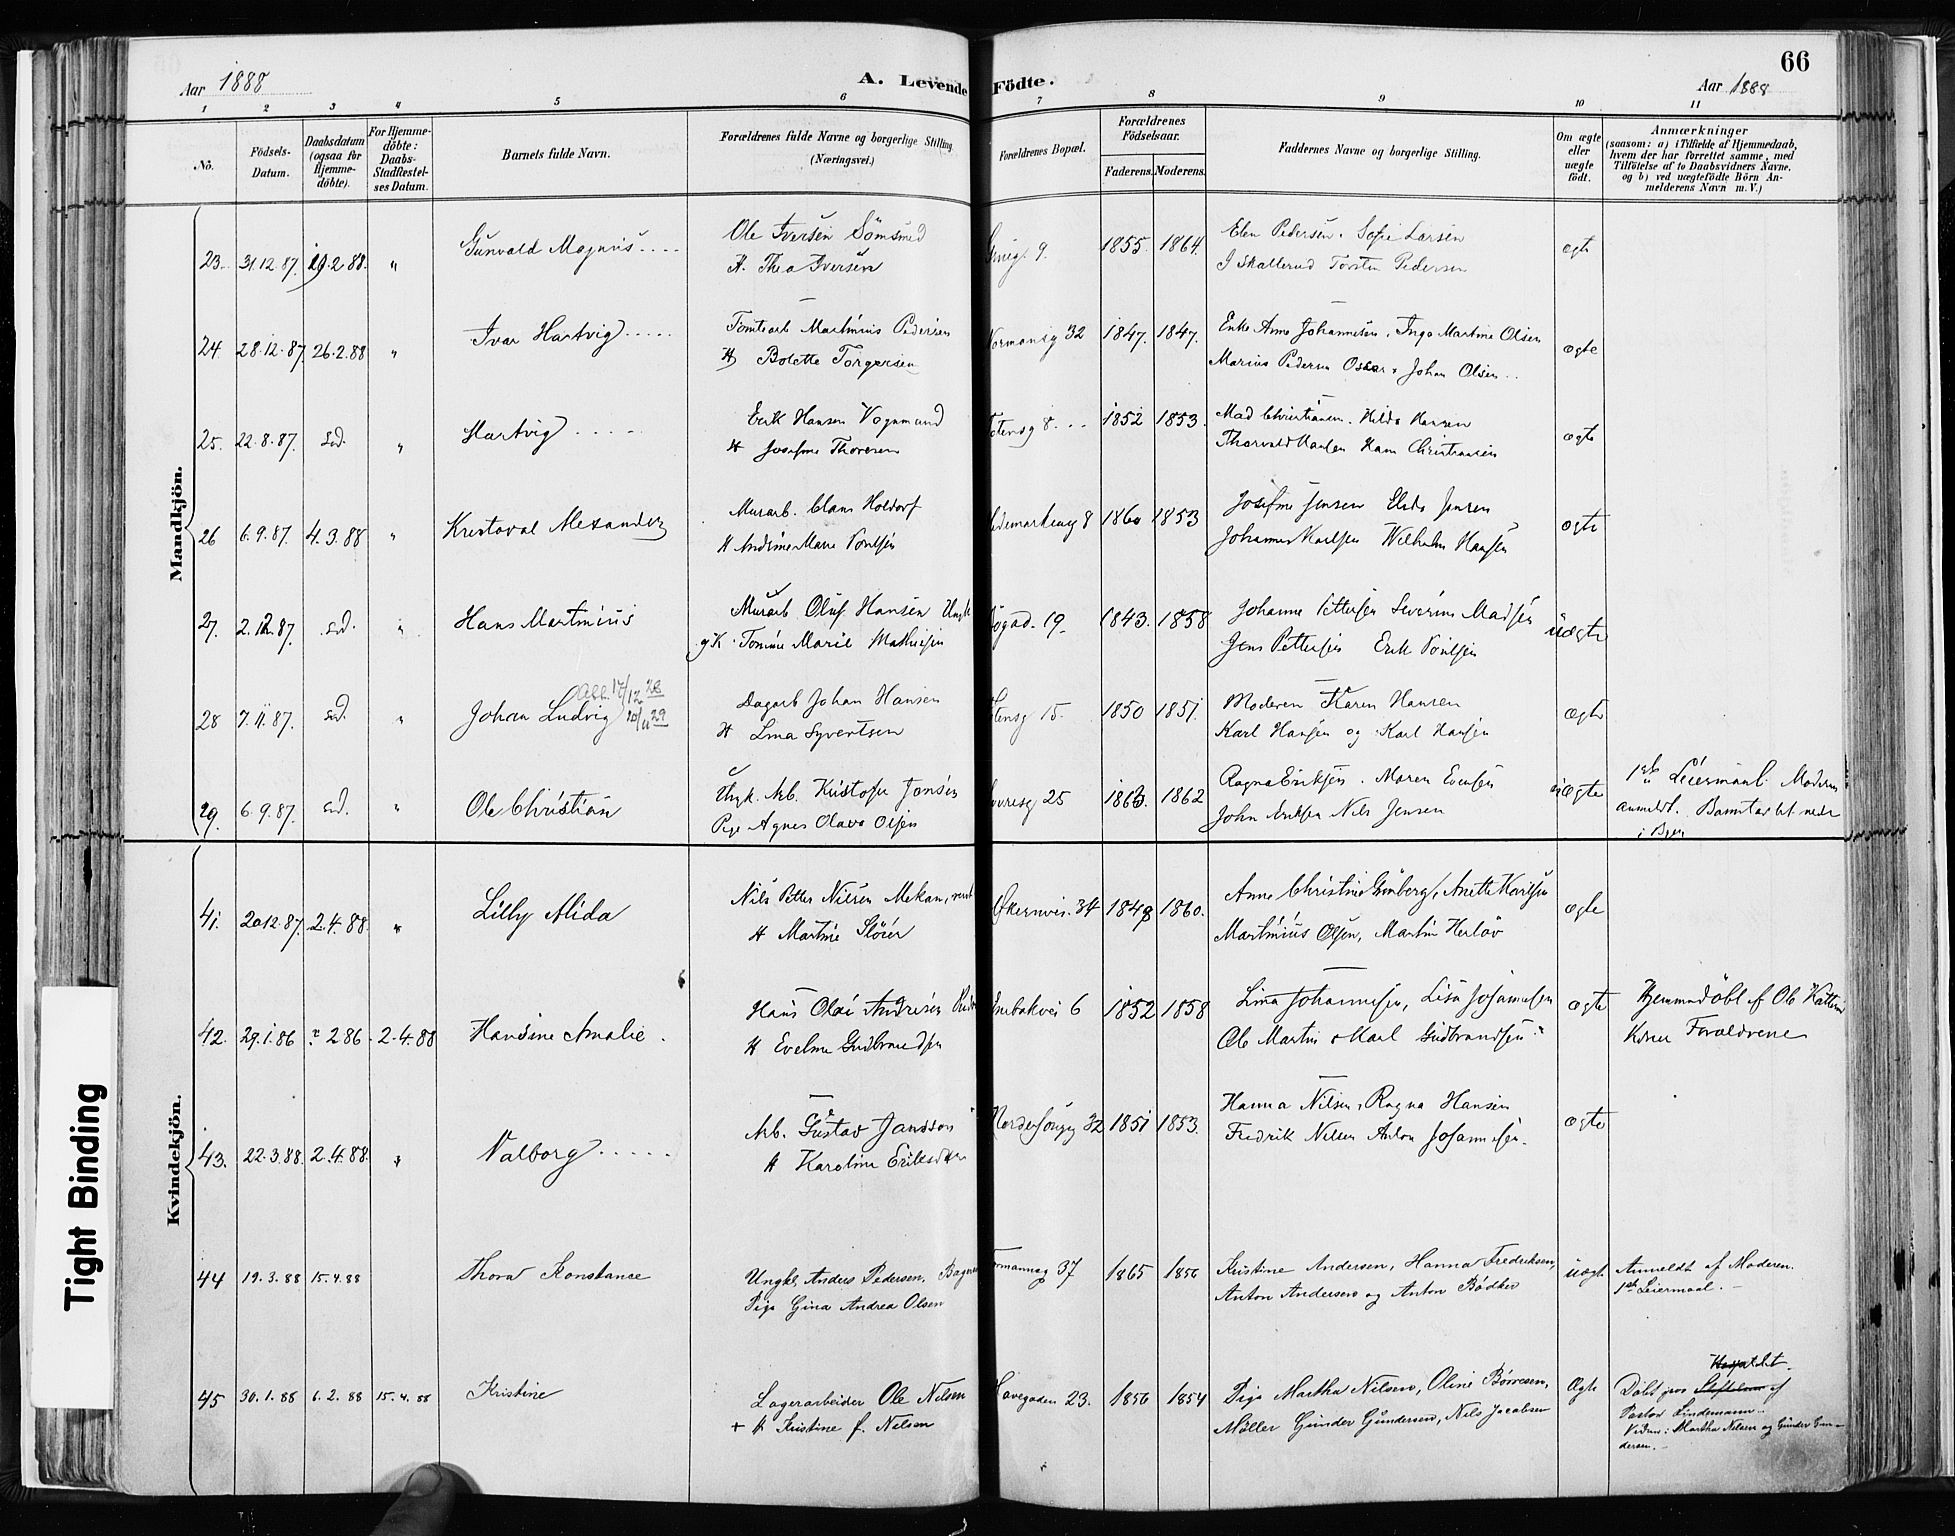 66
Aar 1888
A. Levende Födte.
Aar 1888
1 2 3 4 5 6 7 8 9 10 11
No.
Födsels-Datum.
Daabsdatum (ogsaa for Hjemme-döbte).
For Hjemme-döbte: Daabs-Stadfæstel-ses Datum.
Barnets fulde Navn.
Forældrenes fulde Navne og borgerlige Stilling.
(Næringsvei.)
Forældrenes Bopæl.
Forældrenes Födselsaar.
Faderens. Moderens.
Faddernes Navne og borgerlige Stilling.
Om ægte eller uægte födt.
Anmærkninger
(saasom: a) i Tilfælde af Hjemmedaab,
hvem der har forrettet samme, med
Tilföielse af to Daabsvidners Navne,
og b) ved uægtefödte Börn An-
melderens Navn m. V.)
Mandkjön.
23. 31.12.87. 19.2.88. " Gunvald Magnus Ole Iversen Sömsmed 9. 1855. 1864. Elen Pedersen. Sofie Larsen ægte
H. Thea Iversen J Skallerud Torsten Pedersen
24. 28.12.87. 26.2.88 " Ivar Hartvig Tomtearb Martinius Pedersen Normansg 32 1847. 1847. Enke Anne Johannesen, Inga Martine Olsen ægte
H Bolette Torgersen Marius Pedersen Oscar & Johan Olsen
25. 22.8.87. s.d. " Hartvig Erik Hansen Vognmand Totensg 8 1852 1853. Mad Christiansen. Hilda Hansen ægte
H Josefine Thoresen Thorvald Hansen Hans Christiansen
26 6.9.87. 4.3.88 " Kristoval Alexander Murarb. Claus Holdorf 8 1860 1853 Josefine Jensen Elida Jensen ægte
H Andrine Marie Poulsen Johannes Karlsen Wilhelm Hansen
27. 2.12.87. s.d. " Hans Martinius Murarb Oluf Hansen Ungk 19. 1843. 1858 Johanne Pettersen Severine Madsen uægte
g K. Tomine Marie Mathisen Jens Pettersen Erik Poulsen
28 7.11.87. s.d. " Johan Ludvig Att. 17/12 28 20/11 29 Dagarb Johan Hansen 15. 1850 1851. Moderen Karen Hansen ægte
H Lina Syvertsen Karl Hansen og Karl Hansen
29. 6.9.87. s.d. " Ole Christian Ungk. Arb. Kristofer Jensen 25 1863. 1862 Ragna Eriksen. Maren Evensen uægte 1ste Leiermaal. Moderen
Pige Agnes Olava Olsen John Eriksen Nils Jensen anmeldt.
i Byen
Kvindekjön.
41. 20.12.87. 2.4.88. " Lilly Alida Nils Petter Nilsen Mekan. Økernvei. 34 1849 1860. Anne Christine Grönberg, Anette Karlsen ægte
H Martine Slöier Martinius Olsen, Martin Herlöv
42. 29.1.86 ? 2 86. 2.4.88 Hansine Amalie. Hans Olai Andresen Enebakvei 6 1852 1858 Lina Johannesen, Lisa Johannesen ægte Hjemmedöbt af Ole Katterud
H Eveline Gudbrandsen Ole Martin & Karl Gudbrandsen Forældrene
43. 22.3.88. 2.4.88. " Valborg Arb. Gustav Jandson 32 1851 1853. Hanna Nilsen, Ragna Hansen ægte
H Karoline Eriksdatter Fredrik Nilsen Anton Johannesen.
44 19.3.88 15.4.88 Thora Konstance Ungkl. Anders Pedersen, Bager Normannsg 37 1865 1856 Kristine Andersen, Hanna Fredriksen, uægte Anmeldt af Moderen.
Pige Gina Andrea Olsen Anton Andersen og Anton Bödker 1ste Leiermaal.
45 30.1.88 6.2.88 15.4.88 Kristine Lagerarbeider Ole Nilsen Havegaden 23. 1856 1854 Pige Martha Nilsen, Oline Börresen, Ægte Döbt paa Stiftelsen af
+ H Kristine f. Nilsen Möller Gunder Gundersen, Nils Jacobsen Pastor Lindemann.
Vidner: Martha Nilsen og Gunder Gun-
dersen.
Tight Binding